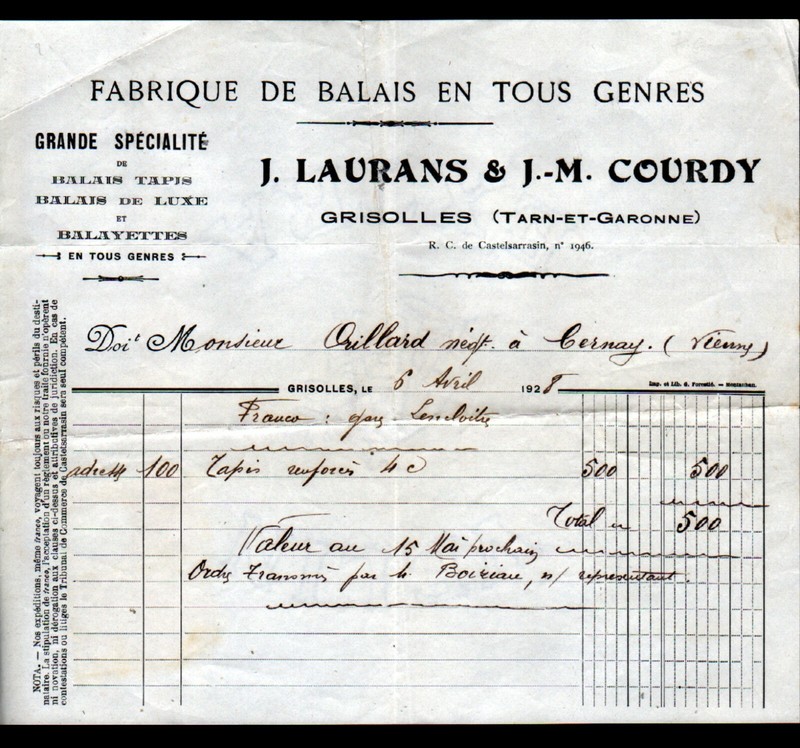 FABRIQUE DE BALAIS EN TOUS GENRES
GRANDE SPÉCIALITÉ
DE
BALAIS TAPIS
BALAIS DE LUXE
ET
BALAYETTES
EN TOUS GENRES
J. LAURANS & J.-M. COURDY
GRISOLLES (TARN-ET-GARONNE)
R. C. de Castelsarrasin, n° 1946.
Doit Monsieur Orillard négt. à Cernay. (Vienne)
GRISOLLES, LE 6 Avril 1928
Imp. et Lib. G. Forestié. — Montauban.
Franco : gare Lencloitre
100 Tapis renforcés 4 c 500 500
Total 500
Valeur au 15 Mai prochain
Ordre Transmis par M. Boiziau, n/ représentant.
NOTA. — Nos expéditions, même franco, voyagent toujours aux risques et périls du desti-
nataire. La stipulation de franco, l'acceptation d'un règlement ou notre traite fournie n'opèrent
ni novation, ni dérogation aux clauses ci-dessus et attributives de juridiction. En cas de
contestations ou litiges le Tribunal de Commerce de Castelsarrasin sera seul compétent.